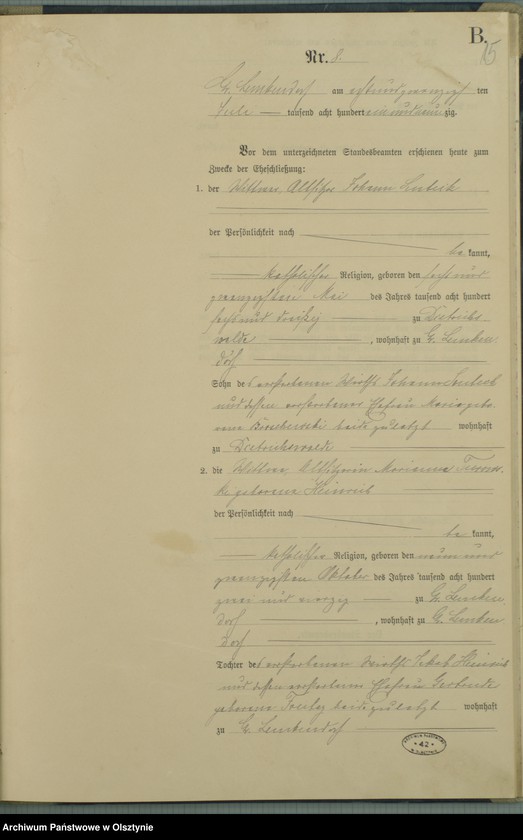 B.
15
Nr. 8.
Gr. Lemkendorf am achtundzwanzigsten
Juli tausend acht hundert ein und neunzig.
Vor dem unterzeichneten Standesbeamten erschienen heute zum
Zwecke der Eheschließung:
1. der Wittwer, Altsitzer Johann
der Persönlichkeit nach
be kannt,
katholischer Religion, geboren den sechs und
zwanzigsten Mai des Jahres tausend acht hundert
sechs und dreißig zu Dietrichs
walde, wohnhaft zu Gr. Lemken
dorf
Sohn des verstorbenen Wirths Johann
und dessen verstorbener Ehefrau Maria gebo
rene beide zuletzt wohnhaft
zu Dietrichswalde
2. die Wittwe, Altsitzerin Marianna
geborene Heinrich
der Persönlichkeit nach
be kannt,
katholischer Religion, geboren den neun und
zwanzigsten Oktober des Jahres tausend acht hundert
zwei und vierzig zu Gr. Lemken
dorf, wohnhaft zu Gr. Lemken
dorf
Tochter des verstorbenen Wirths Jakob Heinrich
und dessen verstorbener Ehefrau Gertrude
geborene beide zuletzt wohnhaft
zu Gr. Lemkendorf
42
Archiwum Państwowe w Olsztynie